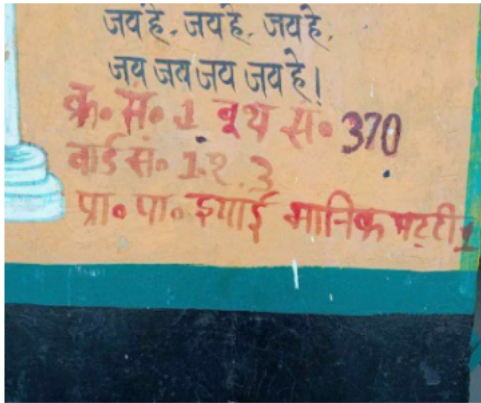 जय हे, जय हे, जय हे,
जय जय जय जय हे!
क्र॰ सं॰ 1 बूथ स॰ 370
वार्ड सं॰ 1.2.3
प्रा॰ पा॰ इयाई मानिक भट्टी 1